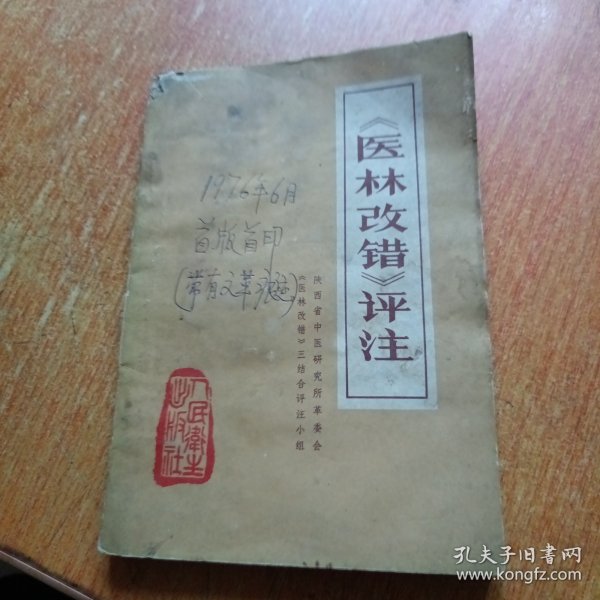 《医林改错》评注
陕西省中医研究所革委会
《医林改错》三结合评注小组
1976年6月
首版首印
(带有文革痕迹)
人民衛生
出版社
孔夫子旧书网
www.kongfz.com